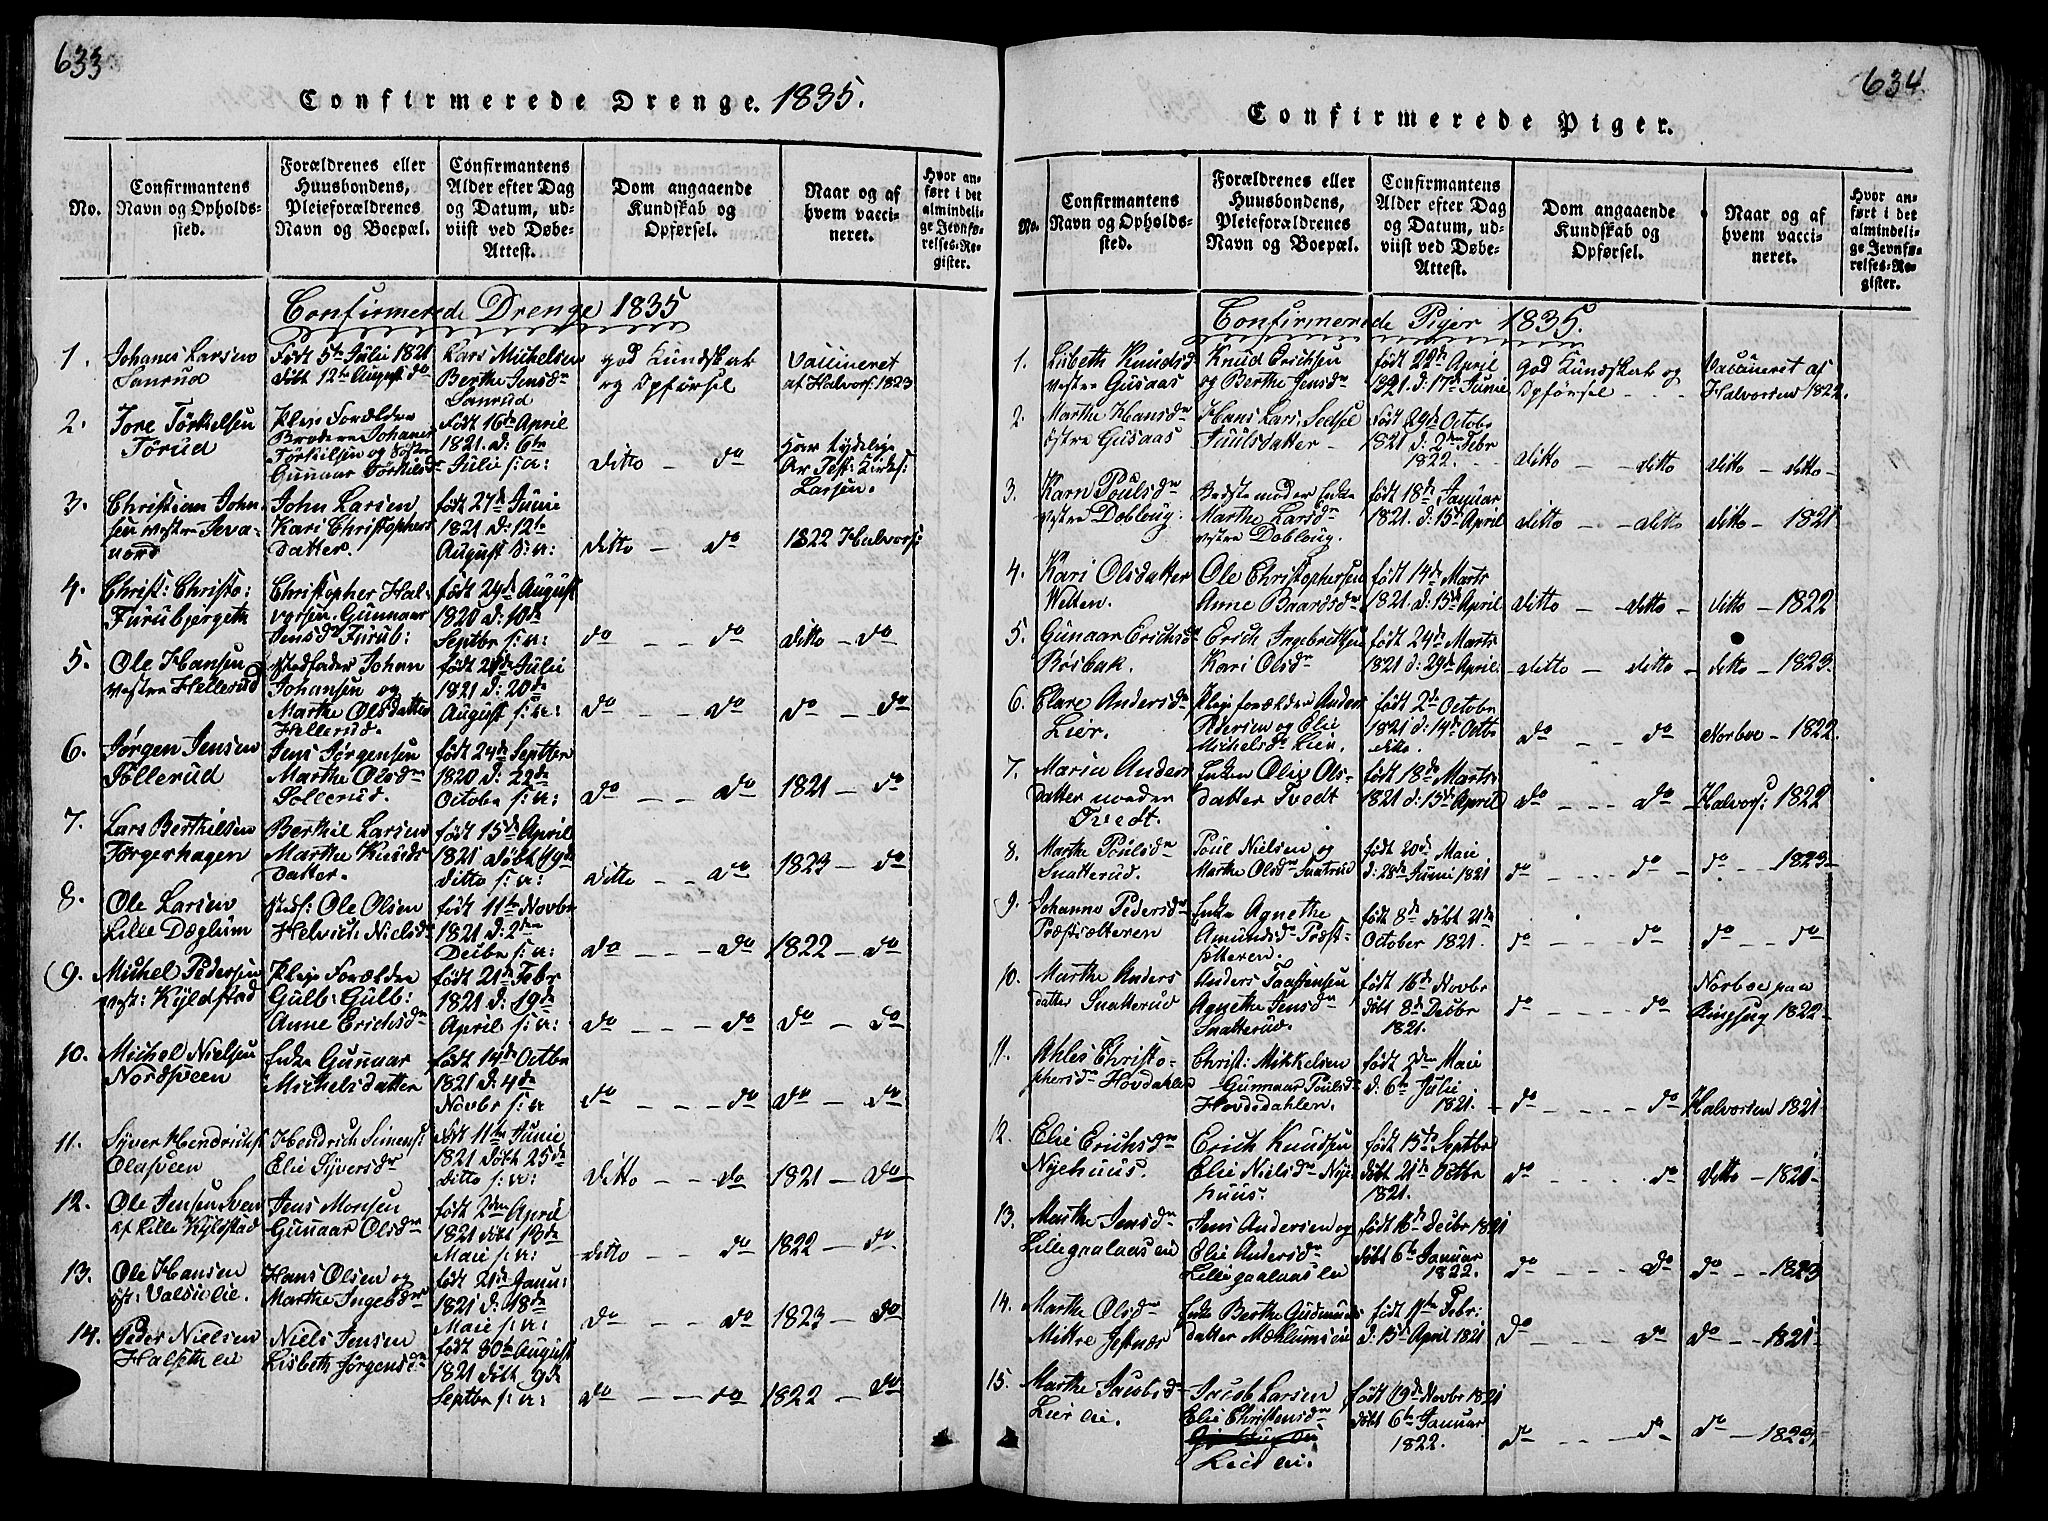 633
Confirmerede Drenge. 1835.
No.
Confirmantens
Navn og Opholds-
sted.
Forældrenes eller
Huusbondens,
Pleieforældrenes
Navn og Boepæl.
Confirmantens
Alder efter Dag
og Datum, ud-
viist ved Døbe-
Attest.
Dom angaaende
Kundskab og
Opførsel.
Naar og af
hvem vacci-
neret.
Hvor an-
ført i det
almindeli-
ge Jevnfø-
relses-Re-
gister.
Confirmerede Drenge 1835
1.
Johanes Larsen
Sanrud
Født 5te Julii 1821
døbt 12te August do
Lars Michelsen
Berthe Jensdr
Sanrud
god Kundskab
og Opførsel
Vaccineret
af Halvors: 1823
2.
Tore Torkelsen
Torud
Pleie Forældre
Broderen Johanes
Torkilsen og
Gunnar Torkilsdr
født 16de April
1821. d: 6te
Julii s: a:
ditto - do
Lydelig
Larsen.
3.
Christian John
sen vestre
John Larsen
Kari Christophers
datter.
født 27de Juni
1821 d: 12te
August s: a:
ditto - do
1822 Halvors:
4.
Christ: Christo:
Furubjerget
Christopher Hal-
vorsen. Gunnaar
Jensdr Furub:
født 24de August
1820 d: 10de
Septbr s: a:
do - - do
ditto - do
5.
Ole Hansen
vestre Hellerud
Stedfader Johan
Johansen og
Marthe Olsdatter
Hellerud.
født Julii
1821 d: 20de
August s: a:
do - - do
do - do
6.
Jørgen Jensen
Sollerud
Jens Jørgensen
Marthe Olsdr
Sollerud.
født 24de Septbr
1820 d: 22de
Octobr s: a:
do - - do
1821 - do
7.
Lars Berthelsen
Torgerhagen
Berthil Larsen
Marthe Knuds
datter.
født 15de April
1821 døbt 19de
ditto s: a:
ditto - - do
1823 - do
8.
Ole Larsen
Lille Døglum
Ole Olsen
Helvich Nielsdr
født 11te Novbr
1821 d: 2den
Decbr s: a:
do - - do
1822 - do
9.
Michel Pedersen
vest: Kyldstad
Pleje Forældre
Gulb: Gulb:
Anne Erichsdr
født 21de Febr
1821 d: 19de
April s: a:
do - - - do
do - do
10.
Michel Nielsen
Nordsveen
Enke Gunnaar
Michelsdatter
født 14de Octbr
1821 d: 4de
Novbr s: a
do - - - do
do - do
11.
Syver Hendrichs
Olasveen
Hendrich Simens:
Elie Syversdr
født 11te Junie
1821 døbt 25de
ditto s: a:
ditto - - do
1821 - do
12.
Ole Jensen Sven
af Lille Kyldstad
Jens Morsen
Gunaar Olsdr
født 2den April
1821 døbt 13de
Maie s: a:
ditto - - do
1822 - do
13.
Ole Hansen
øst: Valsiie eie.
Hans Olsen og
Marthe Ingebdr
født 21de Janu:
1821 d: 18de
Maie s: a:
do - - - do
1823 - do
14.
Peder Nielsen
Halseth eie
Niels Jensen
Lisbeth Jørgensdr
født 30te August
1821 døbt 9de
Septbr s: a:
do - - - do
1822 - do
634.
Confirmerede Piger.
No.
Confirmantens
Navn og Opholds-
sted.
Forældrenes eller
Huusbondens,
Pleieforældrenes
Navn og Boepæl.
Confirmantens
Alder efter Dag
og Datum, ud-
viist ved Døbe-
Attest.
Dom angaaende
Kundskab og
Opførsel.
Naar og af
hvem vacci-
neret.
Hvor an-
ført i det
almindeli-
ge Jevnfø-
relses-Re-
gister.
Confirmerede Piger 1835.
1.
Lisbeth Knudsd
vestre Gusaas
Knud Erichsen
og Berthe Jensdr
født 22de April
1821. d: 17de Junie
god Kundskab og
Opførsel - - -
Vaccineret af
Halvorsen 1822.
2.
Marthe Hansdr
østre Gusaas
Hans Lars: Sedsel
Juulsdatter -
født 29de Octobr
1821 d: 2den Febr
1822.
ditto - - ditto
ditto - ditto -
3.
Karn Poulsdr
vestre Dobloug.
Bedstemoder Enke
Marthe Larsdr
vestre Dobloug.
født 18de Januar
1821. d: 15de April
ditto - - ditto
ditto - 1821
4.
Kari Olsdatter
Welten.
Ole Christophersen
Anne Baardsdr
født 14de Marts
1821. d: 15de April
ditto - ditto -
ditto - 1822
5.
Gunaar Erichsdr
Bøsbak.
Erich Ingebretsen
Kari Olsdr
født 24de Marts
1821 d: 29de April.
ditto - ditto -
ditto - 1823.
6.
Clare Andersdr
Lier.
Pleje forældre Anders
Pedersen og Elie
Michelsdr Lier.
født 2de October
1821 d: 14de Octbr
ditto.
do - - do
Norboe - 1822.
7.
Maria Anders
datter neder
Tvedt.
Enken Olie Ols-
datter Tvedt
født 18de Marts
1821 d: 15de April
do - - - do -
Halvors: 1822
8.
Marthe Poulsdr
Snatterud.
Poul Nielsen og
Marthe Olsdr Snatrud
født 20de Maie
d: 28de Junie 1821
do - - - do -
do - - 1823-
9.
Johanne Pedersdr
Præstsætteren
Enke Agnethe
Amundsdr Præst-
sætteren.
født 8de døbt 21de
October 1821.
do - - - do
do - - do
10.
Marthe Anders
datter Snatterud
Anders Taastensen
Agnethe Jensdr
Snatterud.
født 16de Novbr
døbt 8de Decbr
1821.
do - - - do
Norboe paa
Ringsag 1822-
11.
Ahles Christo-
phersdr Hovdahlen
Christ: Mikkelsen
Gunnaar Poulsdr
Hovdedahlen.
født 2den Maie
d: 6te Julie
1821. -
do - - - - do
Halvorsen 1821-
12.
Elie Erichsdr
Nyehuus.
Erich Knudsen
Elie Nielsdr Nye
huus.
født 15de Septbr
døbt 21de Octbr
1821.
do - - - do
ditto - 1821-
13.
Marthe Jensdr
Lillegaalaas eie
Jens Andersen og
Elie Andersdr
Lillegaalaas eie
født 16de Decbr 1821
døbt 6te Januar
1822.
do - - - do
do - - 1823
14.
Marthe Olsdr
Mittre Jesnes
Enke Berthe Gudmunds
datter Mæhlumseie
født 11te Febr:
d: 15de April 1821
do - - - do
do - - 1821-
15.
Marthe Jacobsd
Lier eie.
Jacob Larsen
Elie Christensdr
Lier eie.
født 19de Novbr 1821
døbt 6te Januar
1822.
do - - - do
do - 1823.